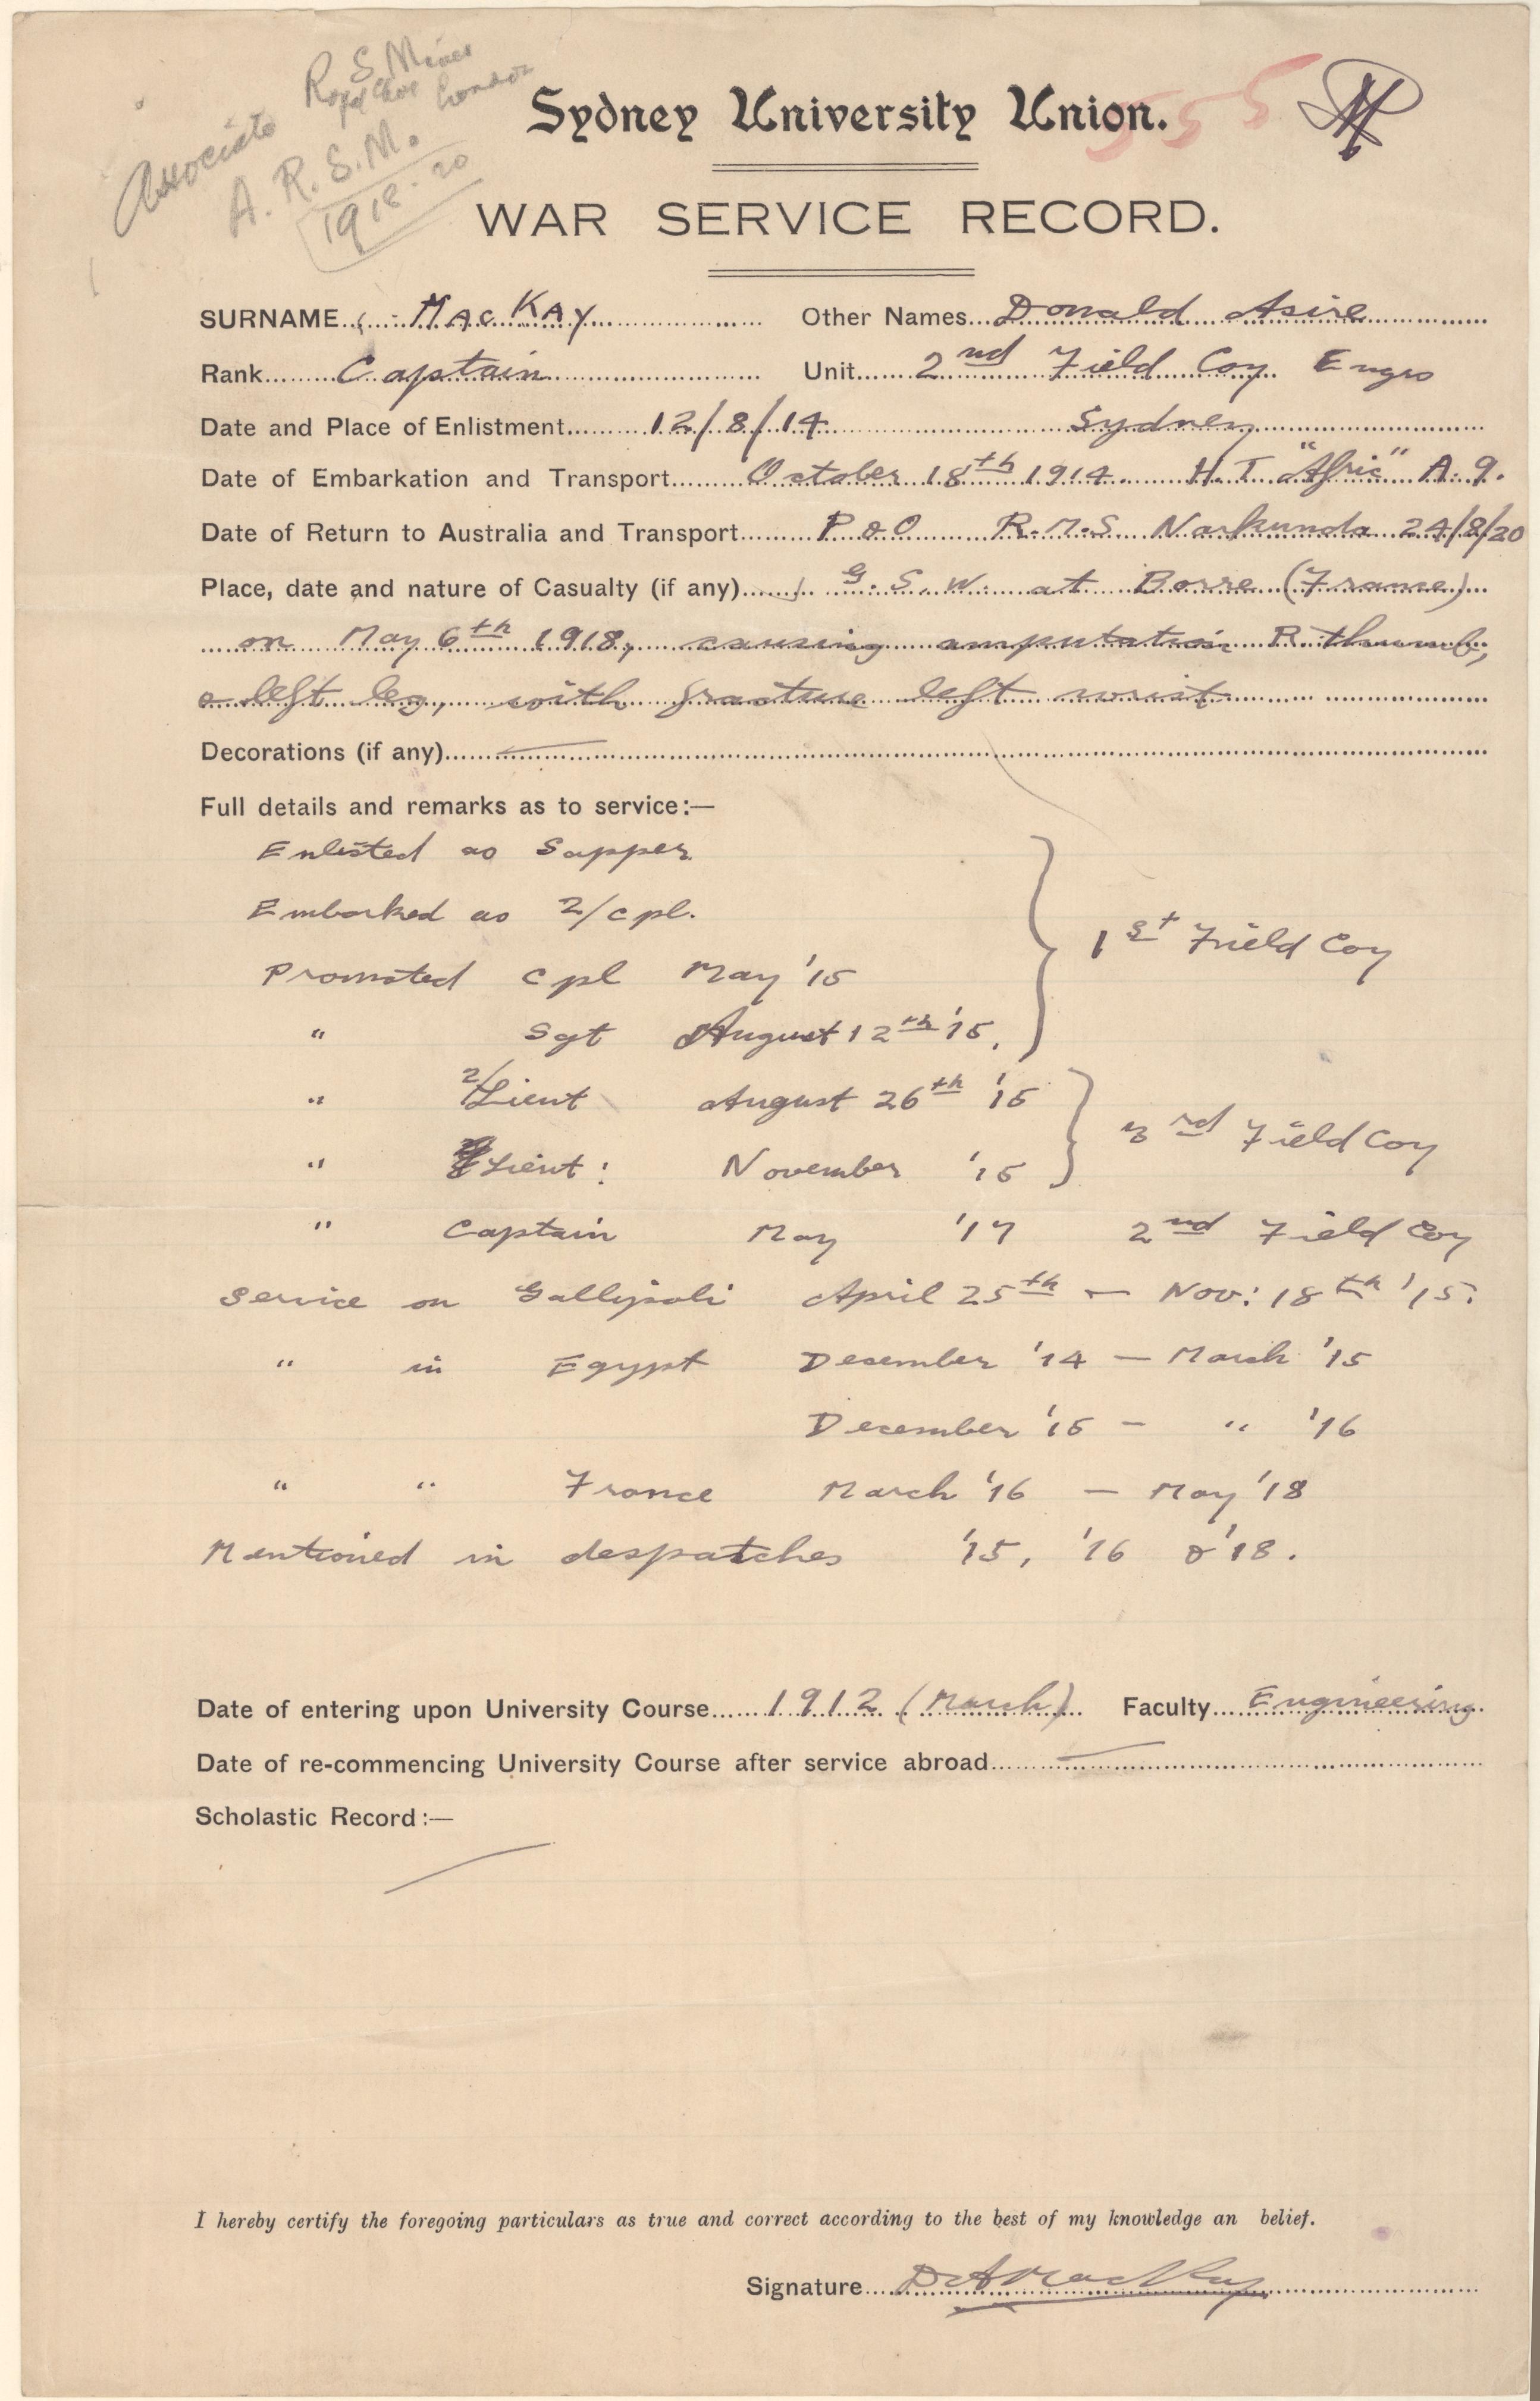 R. S. Mines
Royal School London
Associate
A. R. S. M.
1918-20
555
Sydney University Union.
WAR SERVICE RECORD.
SURNAME MacKAY Other Names Donald Asire
Rank Captain Unit 2nd Field Coy Engrs
Date and Place of Enlistment 12/8/14 Sydney
Date of Embarkation and Transport October 18th 1914. H.T. "Afric" A.9.
Date of Return to Australia and Transport P & O R.M.S. Narkunda 24/8/20
Place, date and nature of Casualty (if any) G.S.W. at Borre (France)
on May 6th 1918, causing amputation R. thumb,
& left leg, with fracture left wrist
Decorations (if any) —
Full details and remarks as to service:—
Enlisted as Sapper
Embarked as 2/cpl.
Promoted Cpl May '15
" Sgt August 12th '15. } 1st Field Coy
" 2/Lieut August 26th '15
" Lieut: November '15 } 3rd Field Coy
" Captain May '17 2nd Field Coy
Service on Gallipoli April 25th — Nov: 18th '15.
" in Egypt December '14 — March '15
December '15 — " '16
" " France March '16 — May '18
Mentioned in despatches '15, '16 & '18.
Date of entering upon University Course 1912 (March) Faculty Engineering
Date of re-commencing University Course after service abroad —
Scholastic Record:—
I hereby certify the foregoing particulars as true and correct according to the best of my knowledge an belief.
Signature D A MacKay